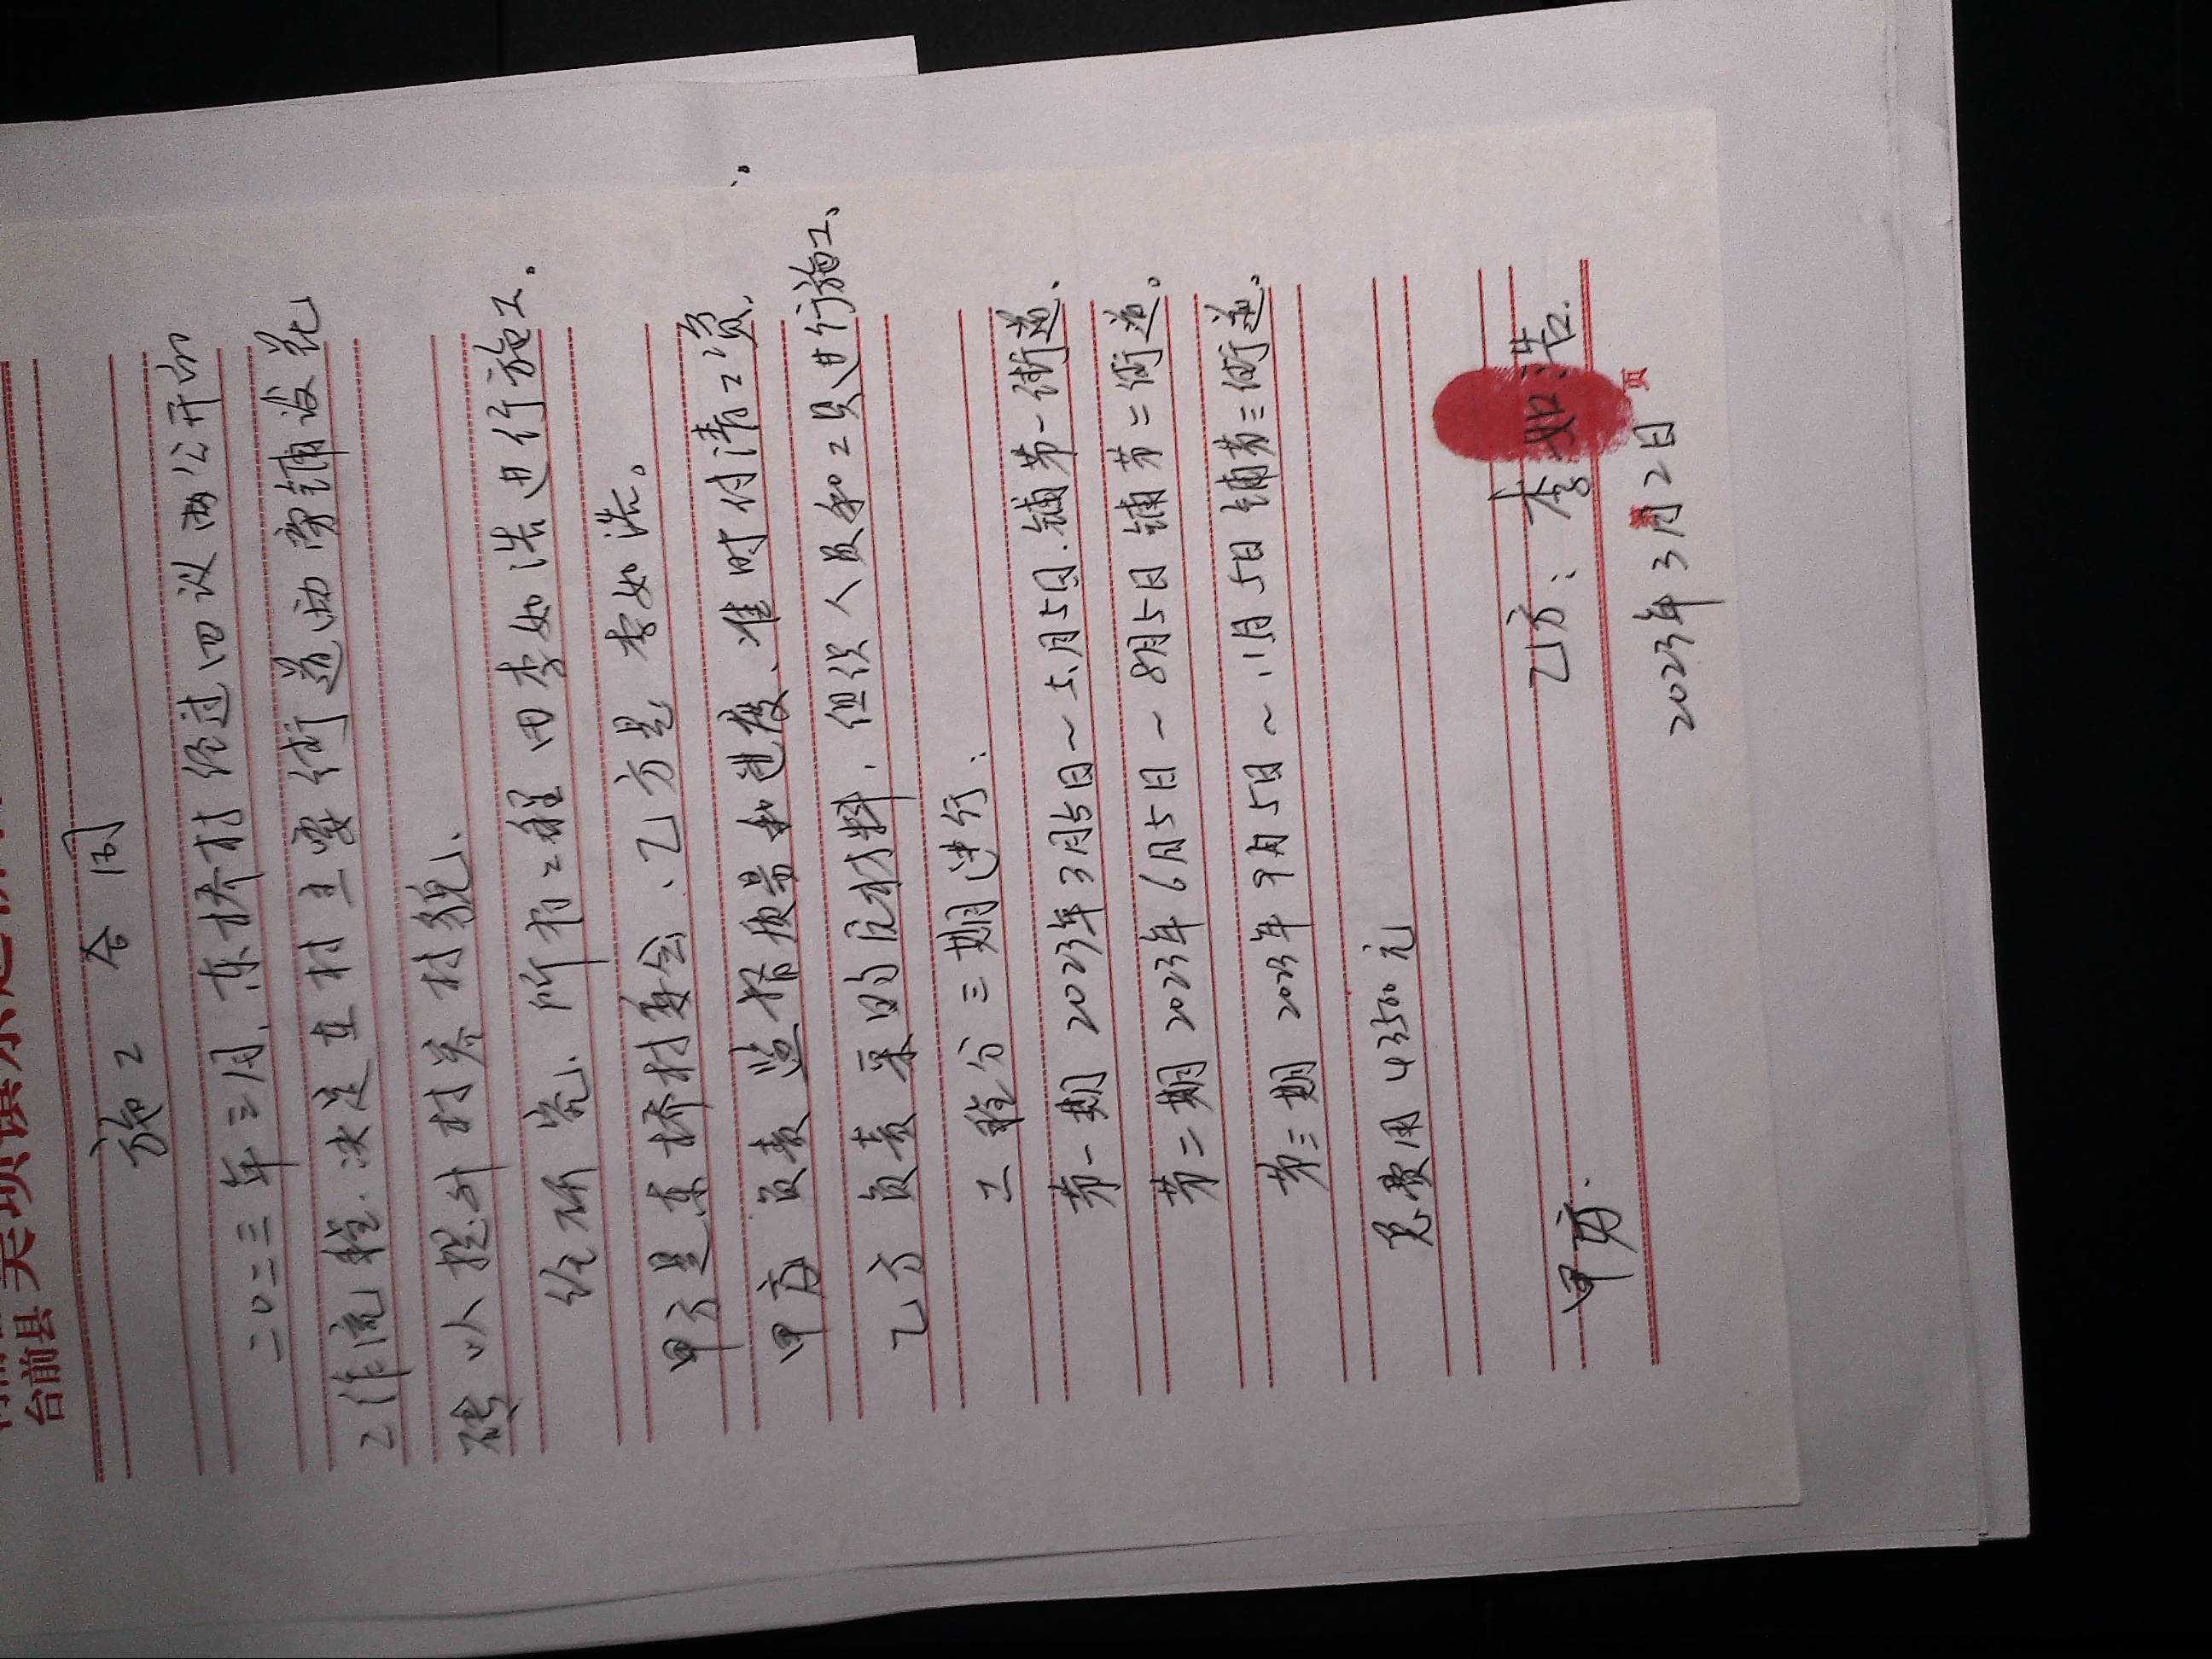 台前县吴坝镇东
施工合同
二〇二三年三月，东桥村经过四议两公开的
工作流程，决定在村主要街道两旁铺设花
砖以提升村美村貌。
经研究，所有工程由李如浩进行施工。
甲方是东桥村委会，乙方是李如浩。
甲方负责监督质量和进度，准时付清工资，
乙方负责采购原材料，组织人员和工具进行施工。
工程分三期进行：
第一期 2023年3月5日～5月5日.铺第一街道.
第二期 2023年6月5日～8月5日铺第二街道。
第三期 2023年9月5日～11月5日铺第三街道。
总费用43500元
甲方： 乙方：李如浩.
页
2023年3月2日